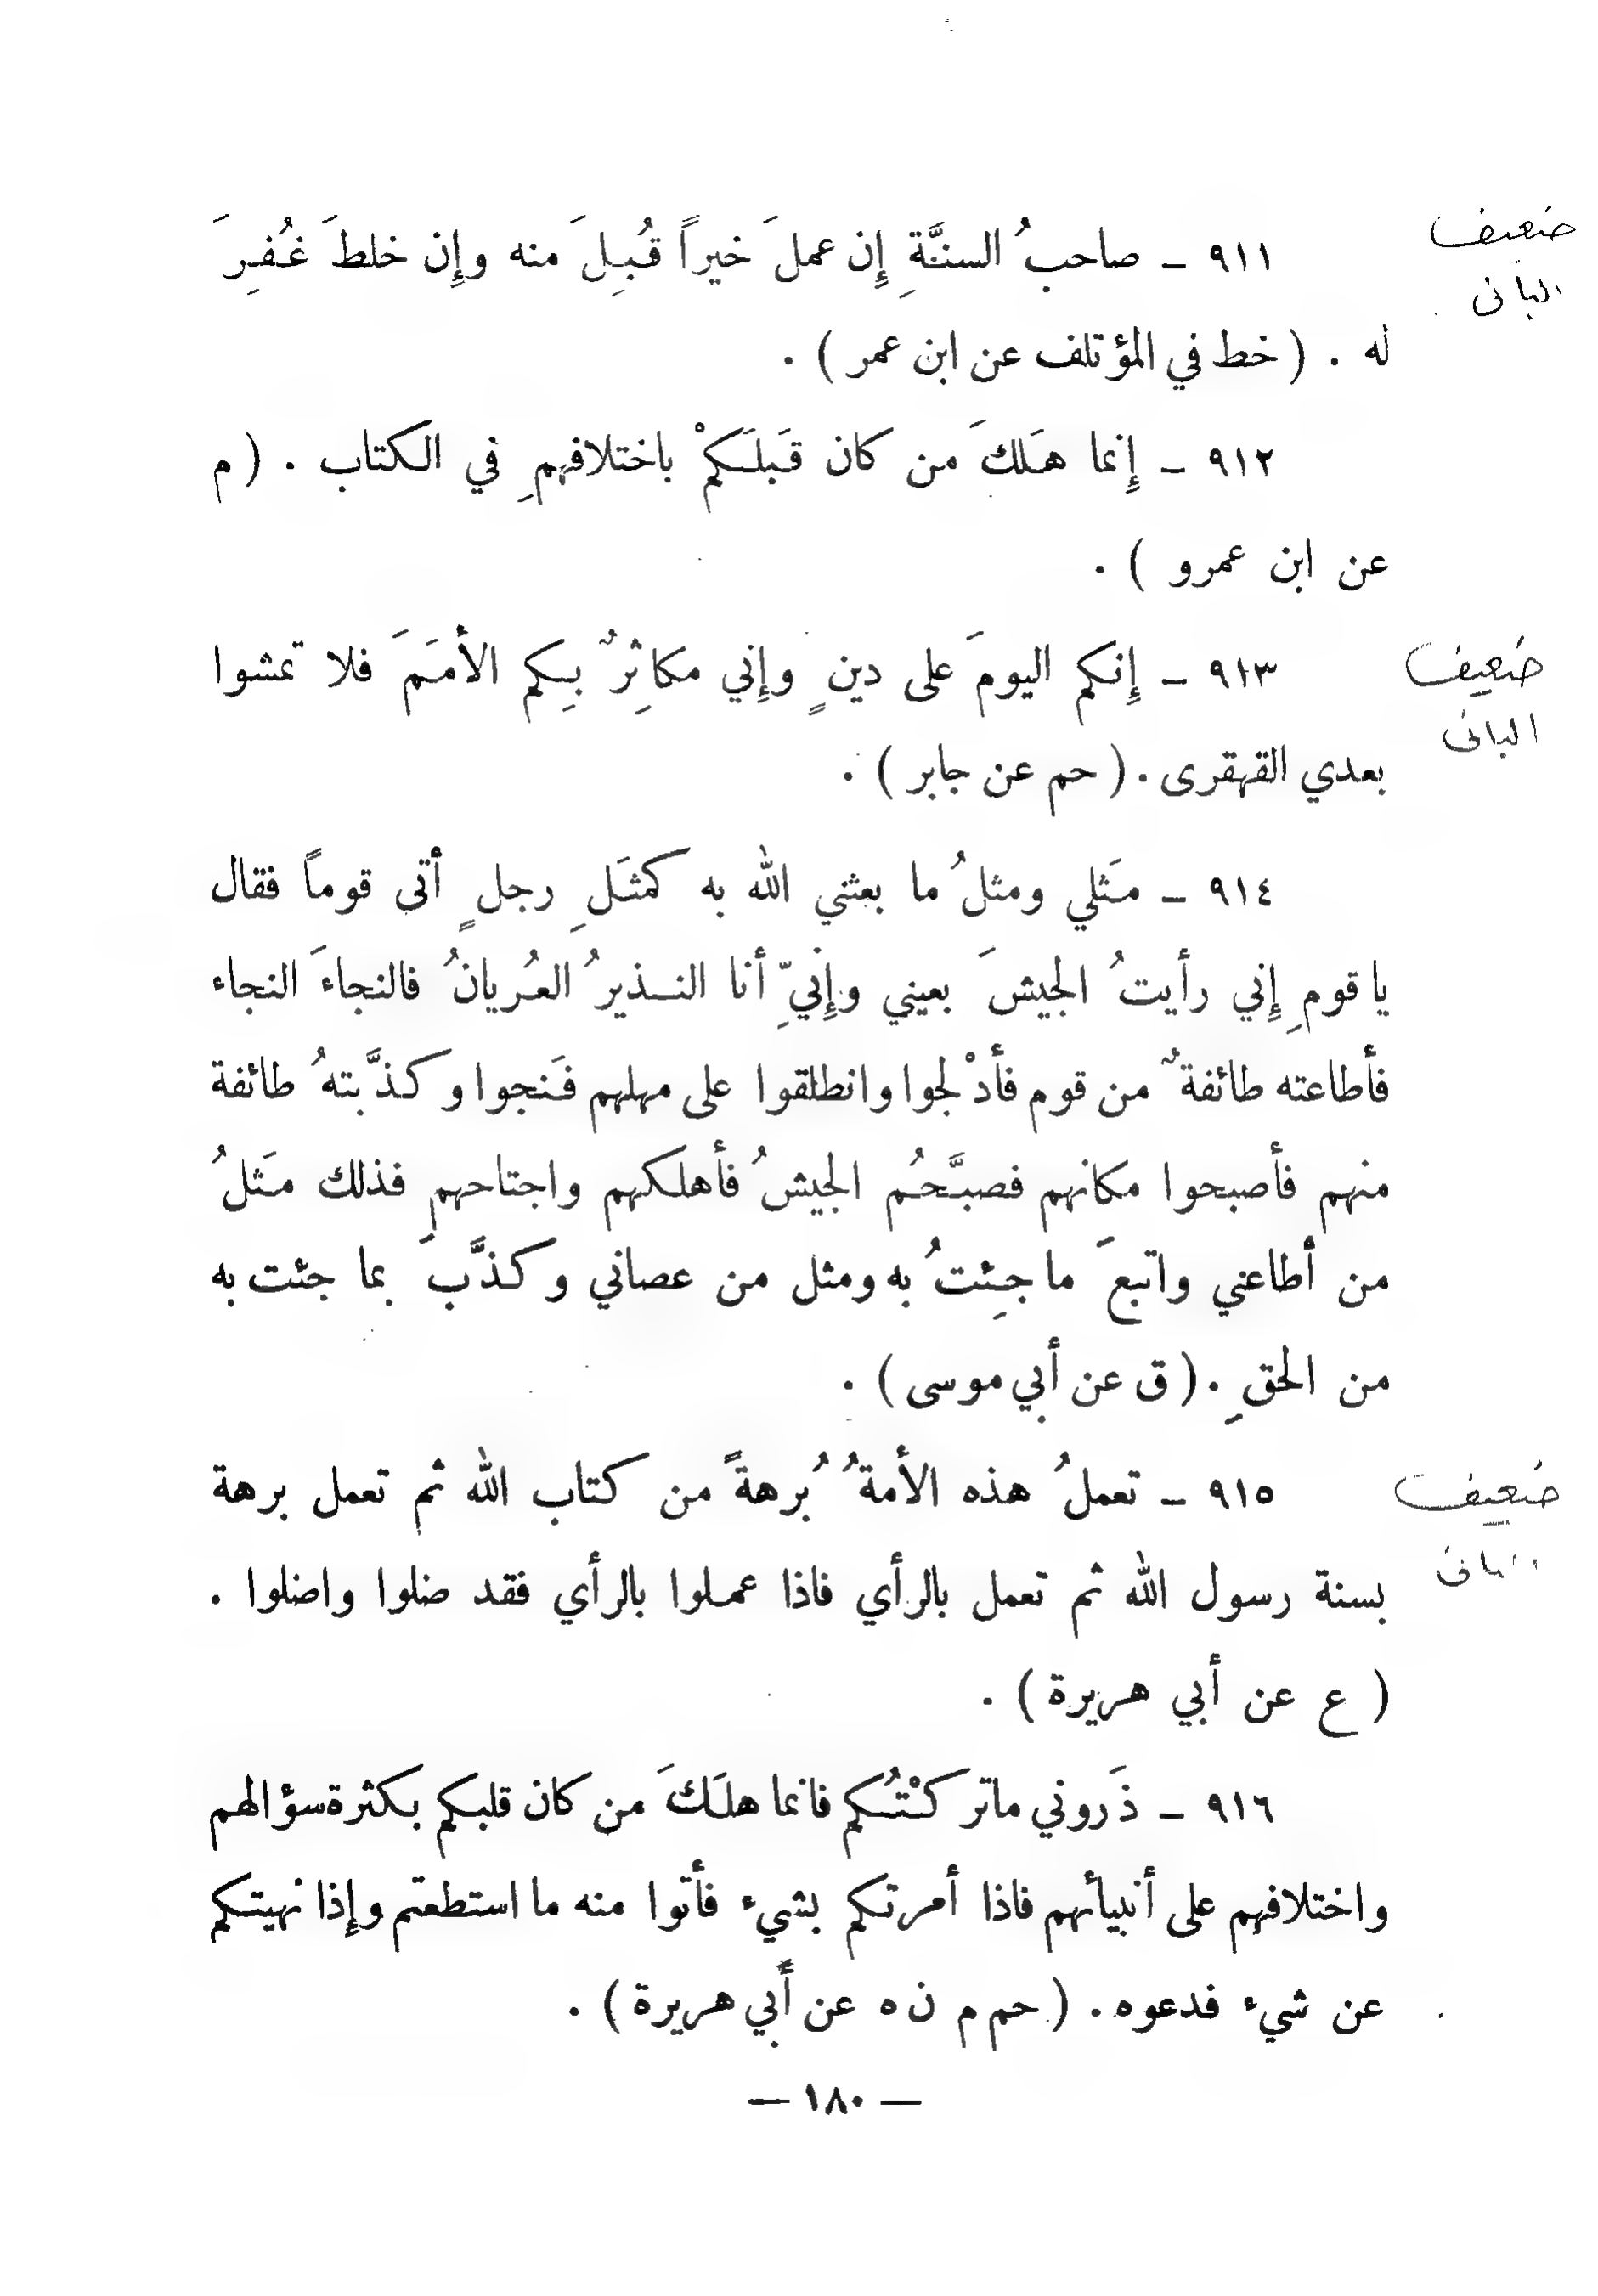 ٩١١ ـ صاحبُ السنَّةِ إِن عملَ خيراً قُبِلَ منه وإِن خلطَ غُفِرَ
ضعيف
الباني
له . ( خط في المؤتلف عن ابن عمر ) .
٩١٢ ـ إِنما هَلكَ من كان قَبلَكمْ باختلافهمِ في الكتاب . ( م
عن ابن عمرو ) .
٩١٣ ـ إِنكم اليومَ على دينٍ وإِني مكاثِرٌ بِكم الأمَمَ فلا تمشوا
ضعيف
الباني
بعدي القهقرى . ( حم عن جابر ) .
٩١٤ ـ مَثلي ومثلُ ما بعثني الله به كمثَلِ رجلٍ أتى قوماً فقال
يا قومِ إِني رأيتُ الجيشَ بعيني وإِنيِّ أنا النذيرُ العُريانُ فالنجاءَ النجاء
فأطاعته طائفةٌ من قوم فأدْلجوا وانطلقوا على مهلهم فَنجوا وكذَّبتهُ طائفة
منهم فأصبحوا مكانهم فصبَّحُم الجيشُ فأهلكهم واجتاحهم فذلك مَثلُ
من أطاعني واتبعَ ما جِئتُ به ومثل من عصاني وكذَّبَ بما جئت به
من الحقِ . ( ق عن أبي موسى ) .
٩١٥ ـ تعملُ هذه الأمةُ بُرهةً من كتاب الله ثم تعمل برهة
ضعيف
الباني
بسنة رسول الله ثم تعمل بالرأي فاذا عملوا بالرأي فقد ضلوا واضلوا .
( ع عن أبي هريرة ) .
٩١٦ ـ ذَروني ماتركْتُكم فانما هلَكَ من كان قلبكم بكثرة سؤالهم
واختلافهم على أنبيائهم فاذا أمرتكم بشيء فأتوا منه ما استطعتم وإِذا نهيتكم
عن شيء فدعوه . ( حم م ن ه عن أبي هريرة ) .
— ١٨٠ —